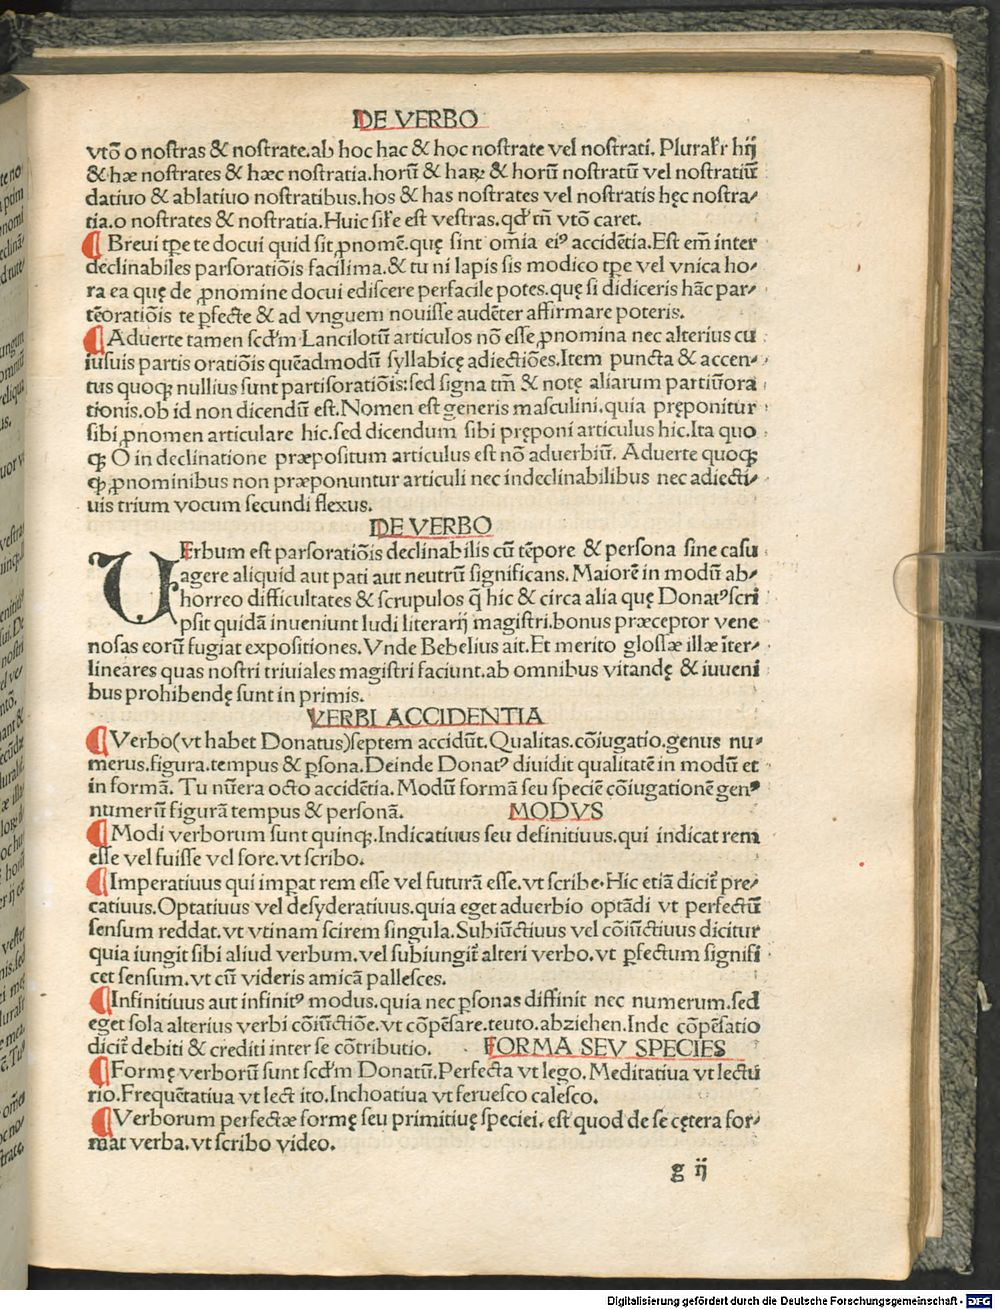 DE VERBO
vtō o nostras & nostrate.ab hoc hac & hoc nostrate vel nostrati. Pluralr̃ hij
& hæ nostrates & hæc nostratia.horū & haꝝ & horū nostratū vel nostratiū
datiuo & ablatiuo nostratibus.hos & has nostrates vel nostratis hęc nostra/
tia.o nostrates & nostratia.Huic sil̃e est vestras.qď tñ vtō caret.
¶ Breui tp̃e te docui quid sit ꝓnomē.quę sint om̃ia eiꝰ accidētia.Est em̃ inter
declinabiles parsoratiōis facilima.& tu ni lapis sis modico tp̃e vel vnica ho/
ra ea quę de ꝓnomine docui ediscere perfacile potes.quę si didiceris hãc par/
tēoratiōis te ꝑfecte & ad vnguem nouisse audēter affirmare poteris.
¶ Aduerte tamen scďm Lancilotū articulos nō esse ꝓnomina nec alterius cu
iusuis partis oratiōis quēadmodū syllabicę adiectiōes.Item puncta & accen/
tus quoqꝫ nullius sunt partisoratiōis:sed signa tm̃ & notę aliarum partiūora
tionis.ob id non dicendū est.Nomen est generis masculini.quia pręponitur
sibi ꝓnomen articulare hic.sed dicendum sibi pręponi articulus hic.Ita quo
qꝫ O in declinatione præpositum articulus est nō aduerbiū. Aduerte quoqꝫ
ꝙ ꝓnominibus non præponuntur articuli nec indeclinabilibus nec adiecti/
uis trium vocum secundi flexus.
DE VERBO
VErbum est parsoratiōis declinabilis cū tēpore & persona sine casu
agere aliquid aut pati aut neutrū significans. Maiorē in modū ab/
horreo difficultates & scrupulos q̃ hic & circa alia quę Donatꝰscri
psit quidã inueniunt ludi literarij magistri.bonus præceptor vene
nosas eorū fugiat expositiones.Vnde Bebelius ait.Et merito glossæ illæ īter/
lineares quas nostri triuiales magistri faciunt.ab omnibus vitandę & iuueni
bus prohibendę sunt in primis.
VERBI ACCIDENTIA
¶ Verbo(vt habet Donatus)septem accidūt.Qualitas.cōiugatio.genus nu/
merus.figura.tempus & ꝑsona.Deinde Donatꝰ diuidit qualitatē in modū et
in formã. Tu nūera octo accidētia. Modū formã seu speciē cōiugationē genꝰ
numerū figurã tempus & personã. MODVS
¶ Modi verborum sunt quinqꝫ.Indicatiuus seu definitiuus.qui indicat rem
esse vel fuisse vel fore.vt scribo.
¶ Imperatiuus qui imꝑat rem esse vel futurã esse.vt scribe.Hic etiã dicit̃ pre/
catiuus.Optatiuus vel desyderatiuus.quia eget aduerbio optãdi vt perfectū
sensum reddat.vt vtinam scirem singula.Subiūctiuus vel cōiūctiuus dicitur
quia iungit sibi aliud verbum.vel subiungit̃ alteri verbo.vt ꝑfectum signifi
cet sensum.vt cū videris amicã pallesces.
¶ Infinitiuus aut infinitꝰ modus.quia nec ꝑsonas diffinit nec numerum.sed
eget sola alterius verbi cōiūctiōe.vt cōpēsare.teuto.abziehen.Inde cōpēsatio
dicit̃ debiti & crediti inter se cōtributio. FORMA SEV SPECIES
¶ Formę verborū sunt scďm Donatū.Perfecta vt lego. Meditatiua vt lectu
rio.Frequētatiua vt lect ito.Inchoatiua vt feruesco calesco.
¶ Verborum perfectæ formę seu primitiuę speciei. est quod de se cętera for/
mat verba.vt scribo video.
g ij
Digitalisierung gefördert durch die Deutsche Forschungsgemeinschaft - DFG